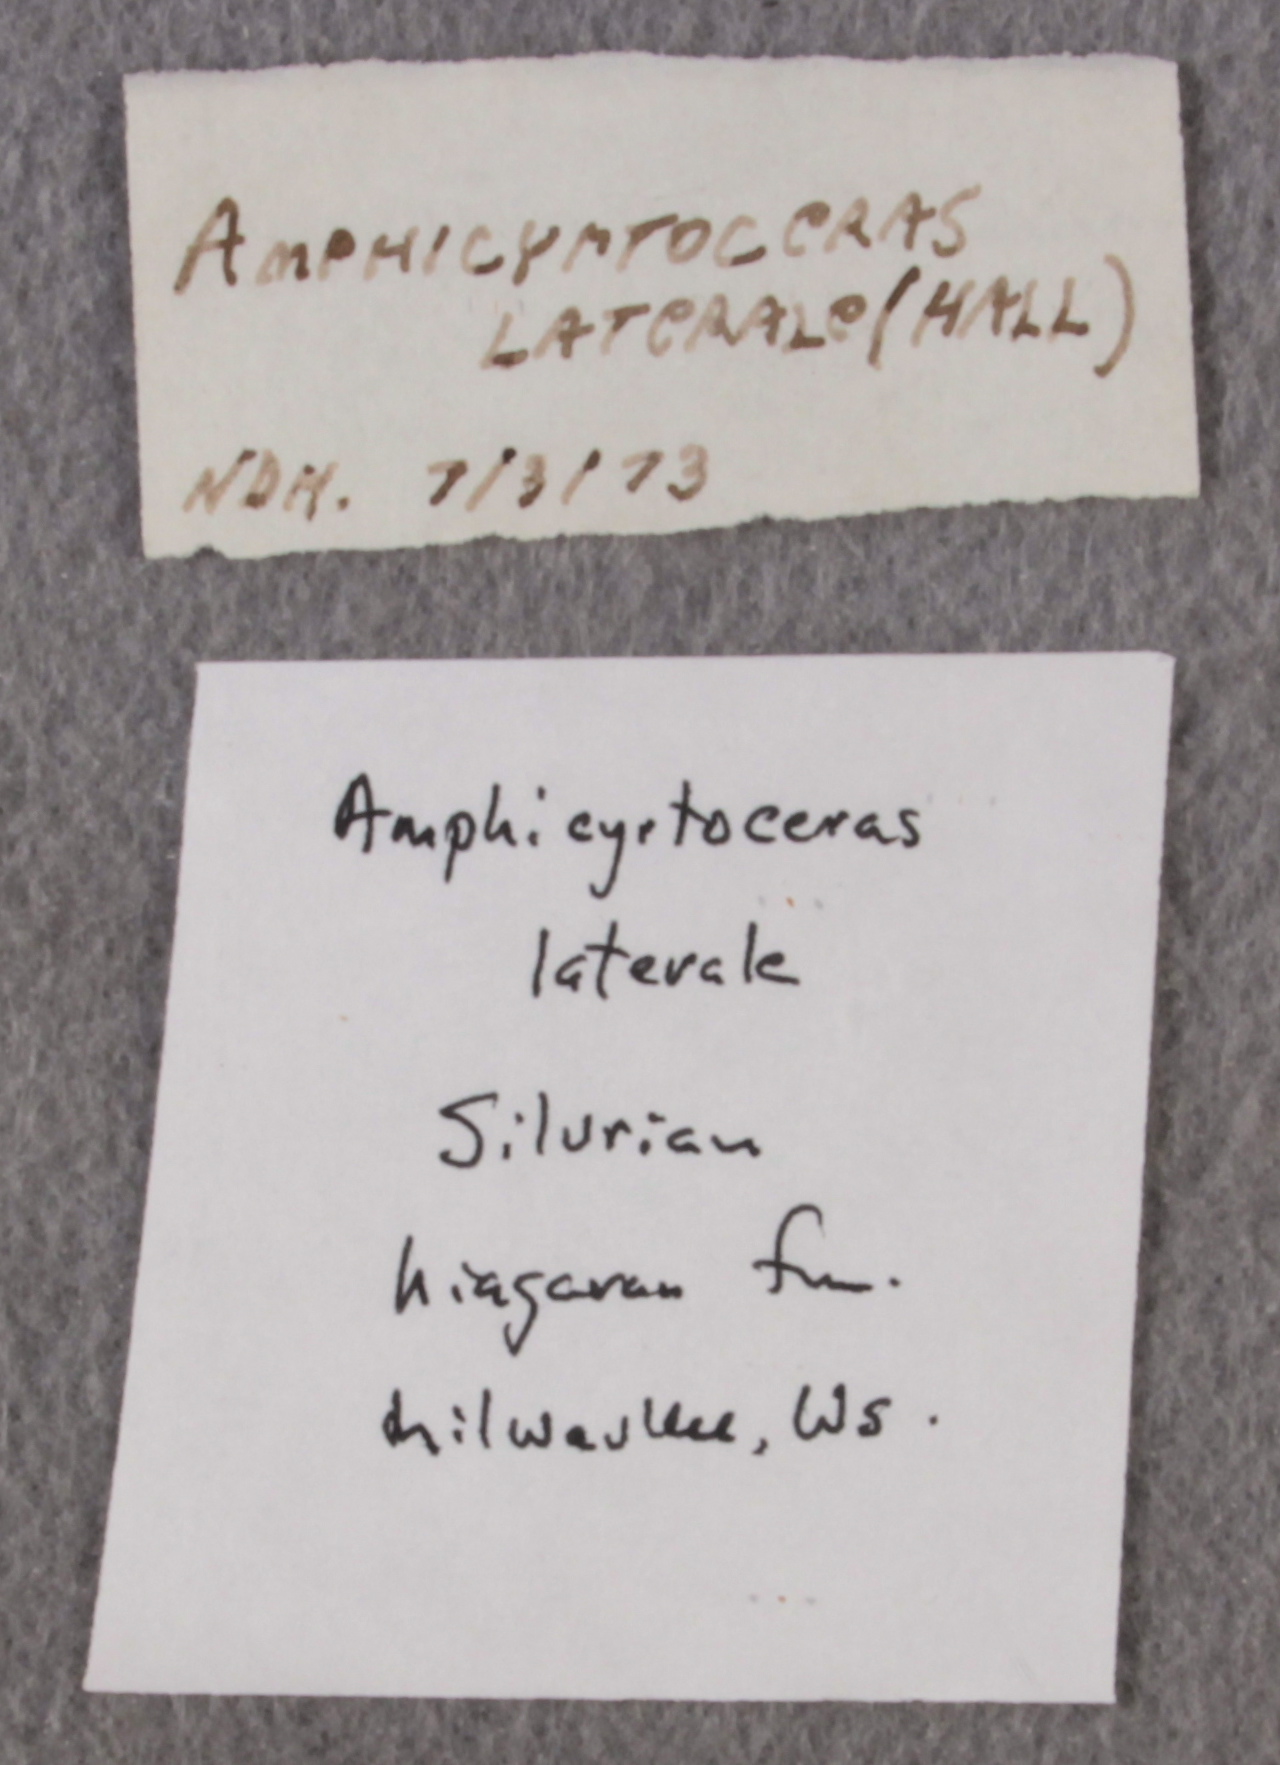 AMPHICYRTOCERAS
LATERALE (HALL)
NDH. 7/3/73
Amphicyrtoceras
laterale
Silurian
Niagaran fm.
Milwaukee, Ws.